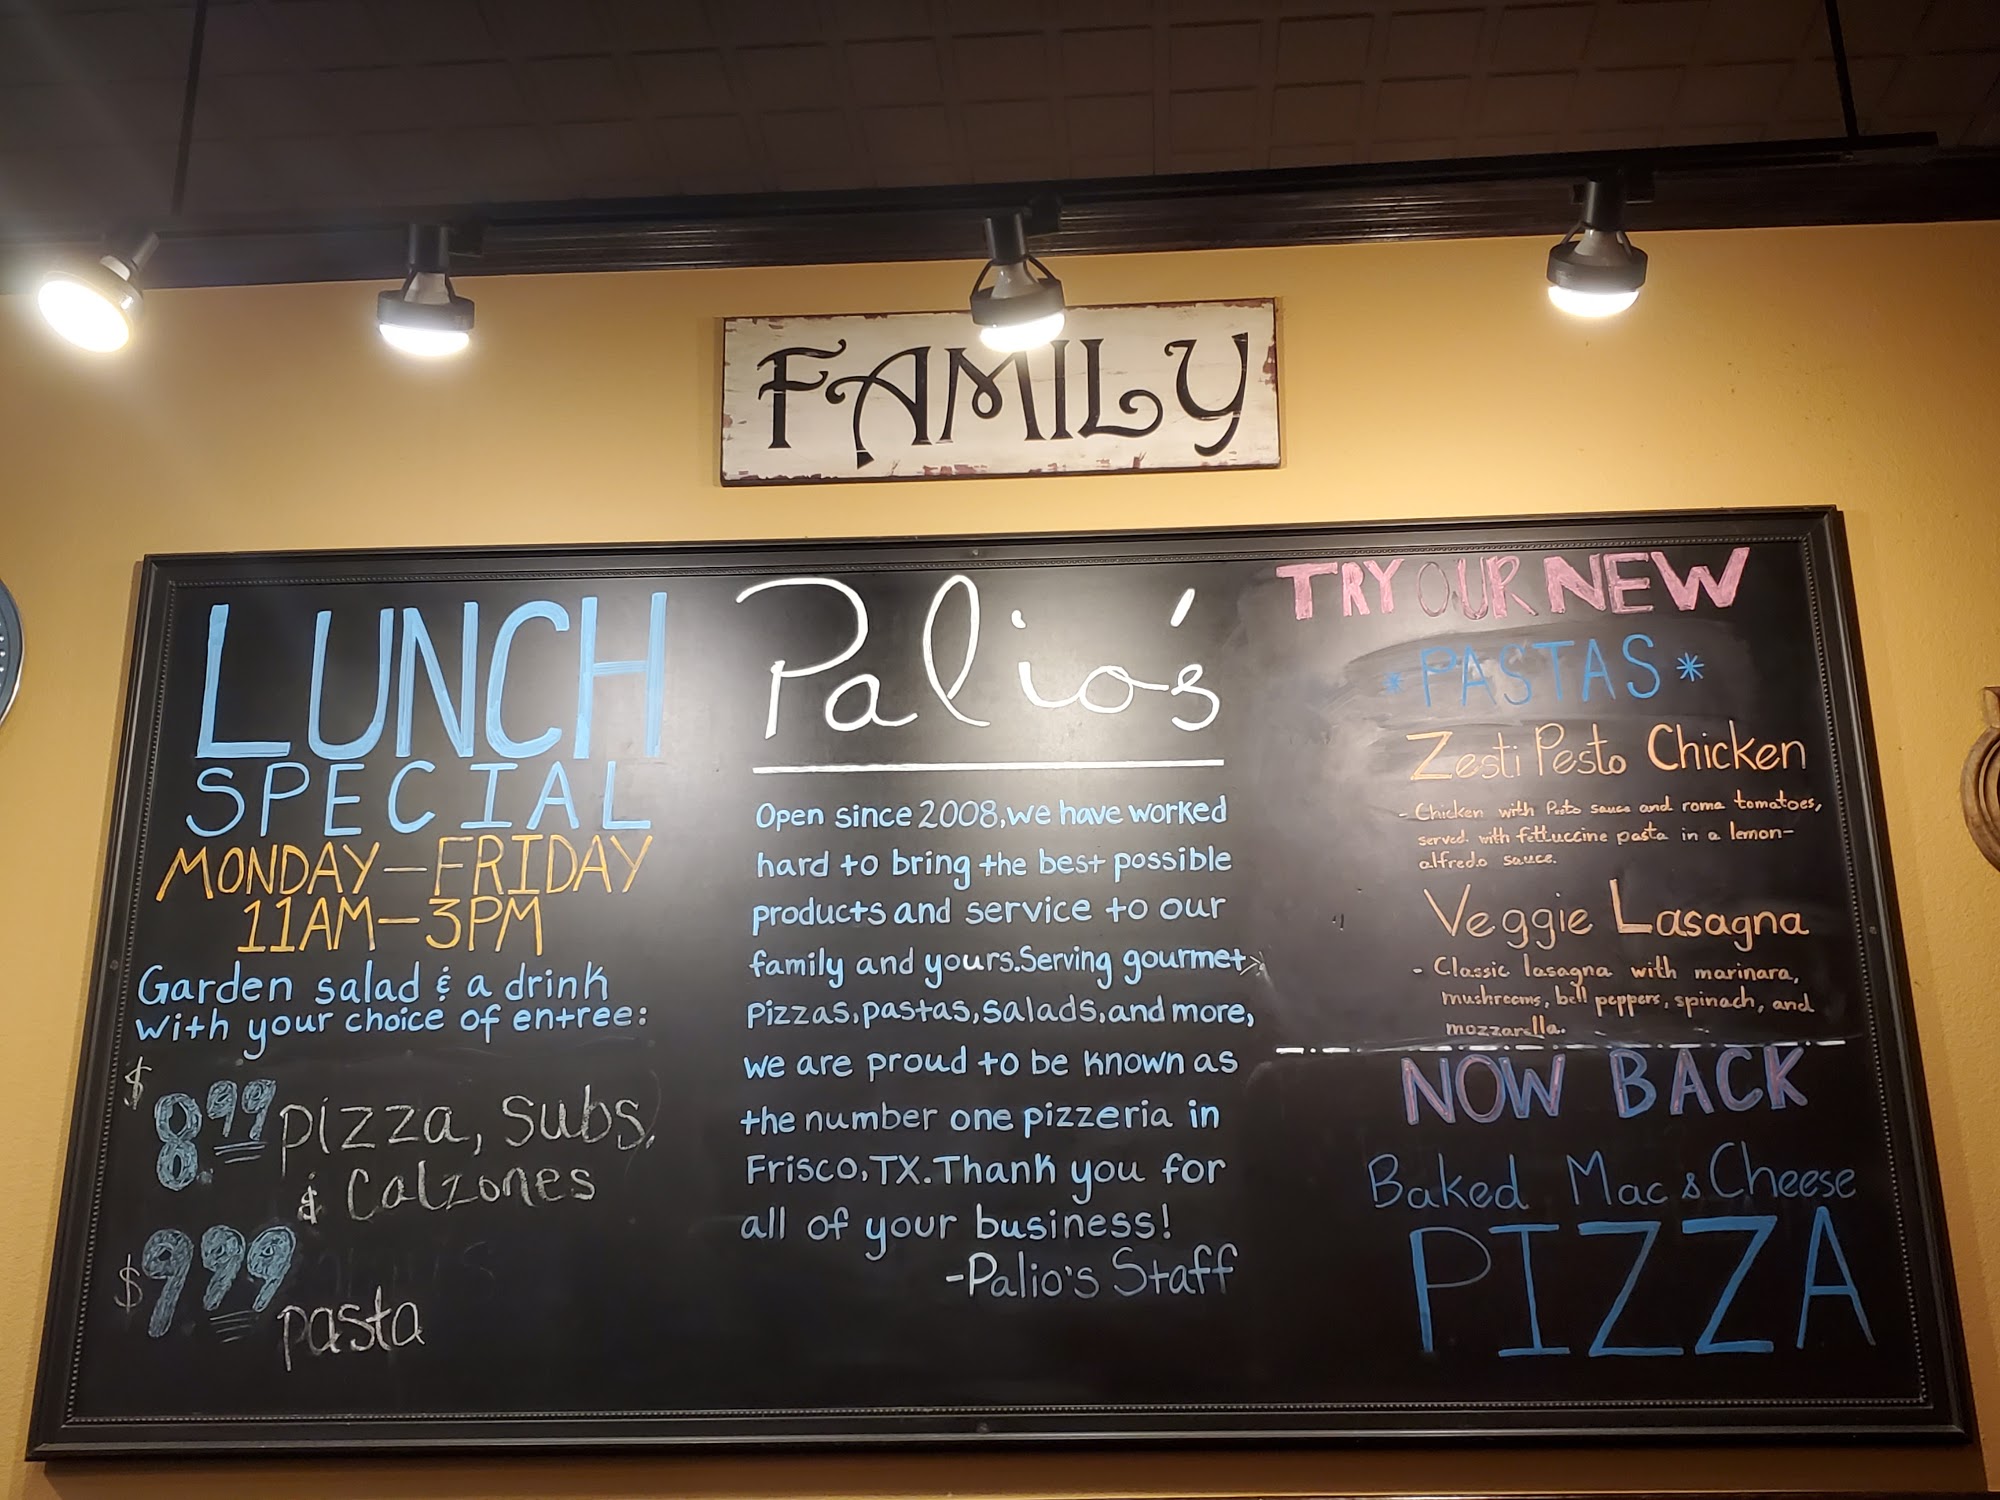 FAMILY
LUNCH
SPECIAL
MONDAY-FRIDAY
11AM-3PM
Garden salad & a drink
with your choice of entree:
$8.99 pizza, subs,
& Calzones
$9.99
pasta
Palio's
Open since 2008, we have worked
hard to bring the best possible
products and service to our
family and yours. Serving gourmet
pizzas, pastas, salads, and more,
we are proud to be known as
the number one pizzeria in
Frisco, TX. Thank you for
all of your business!
-Palio's Staff
TRY OUR NEW
*PASTAS*
Zesti Pesto Chicken
- Chicken with Pesto sauce and roma tomatoes,
served with fettuccine pasta in a lemon-
alfredo sauce.
Veggie Lasagna
- Classic lasagna with marinara,
mushrooms, bell peppers, spinach, and
mozzarella.
NOW BACK
Baked Mac & Cheese
PIZZA